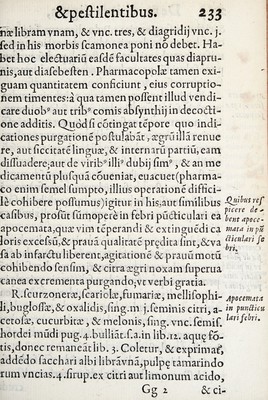 &pestilentibus. 233
næ libram vnam, & vnc. tres, & diagridij vnc. j.
sed in his morbis scamonea poni nō debet. Ha-
bet hoc electuariũ easdẽ facultates quas diapru-
nis, aut diasebesten. Pharmacopolæ tamen exi-
guam quantitatem conficiunt, eius corruptio-
nem timentes: à qua tamen possent illud vendi-
care duobꝰ aut tribꝰ comis absynthij in decocti-
one additis. Quòd si cōtingat tẽpore quo indi-
cationes purgationẽ postulabãt, ægrũ illã renue
re, aut siccitatē linguæ, & internarũ partiũ, eam
dissuadere; aut de viribꝰ illiꝰ dubij simꝰ, & an me
dicamentũ plusquā cōueniat, euacuet (pharma-
co enim semel sumpto, illius operationē diffici-
lè cohibere possumus) igitur in his, aut similibus
casibus, prosũt sũmopere in febri pũcticulari ea
apocemata, quæ vim tẽperandi & extinguēdi ca
loris excessũ, & prauã qualitatē prędita sint, & va
sa ab infarctu liberent, agitationē & prauũ motũ
cohibendo sensim, & citra ægri noxam superua
canea excrementa purgando; vt verbi gratia.
Quibus res
picere de-
bent apoce-
mata in pũ
cticulari fe
bri.
R. scurzoneræ, scariolæ, fumariæ, mellisophi-
li, buglossæ, & oxalidis, sing. m. j. seminis citri, a-
cetosæ, cucurbitæ, & melonis, sing. vnc. semis.
hordei mũdi pug. 4. bulliāt. s. a. in lib. 12. aquę fō-
tis, donec remaneāt lib. 3. Coletur, & exprimat̃,
addēdo sacchari albi librāvnā, pulpę tamarindo
rum vncias. 4. sirup. ex citri aut limonum acido,
Apocemata
in puncticu
lari febri.
Gg 2 & ci-